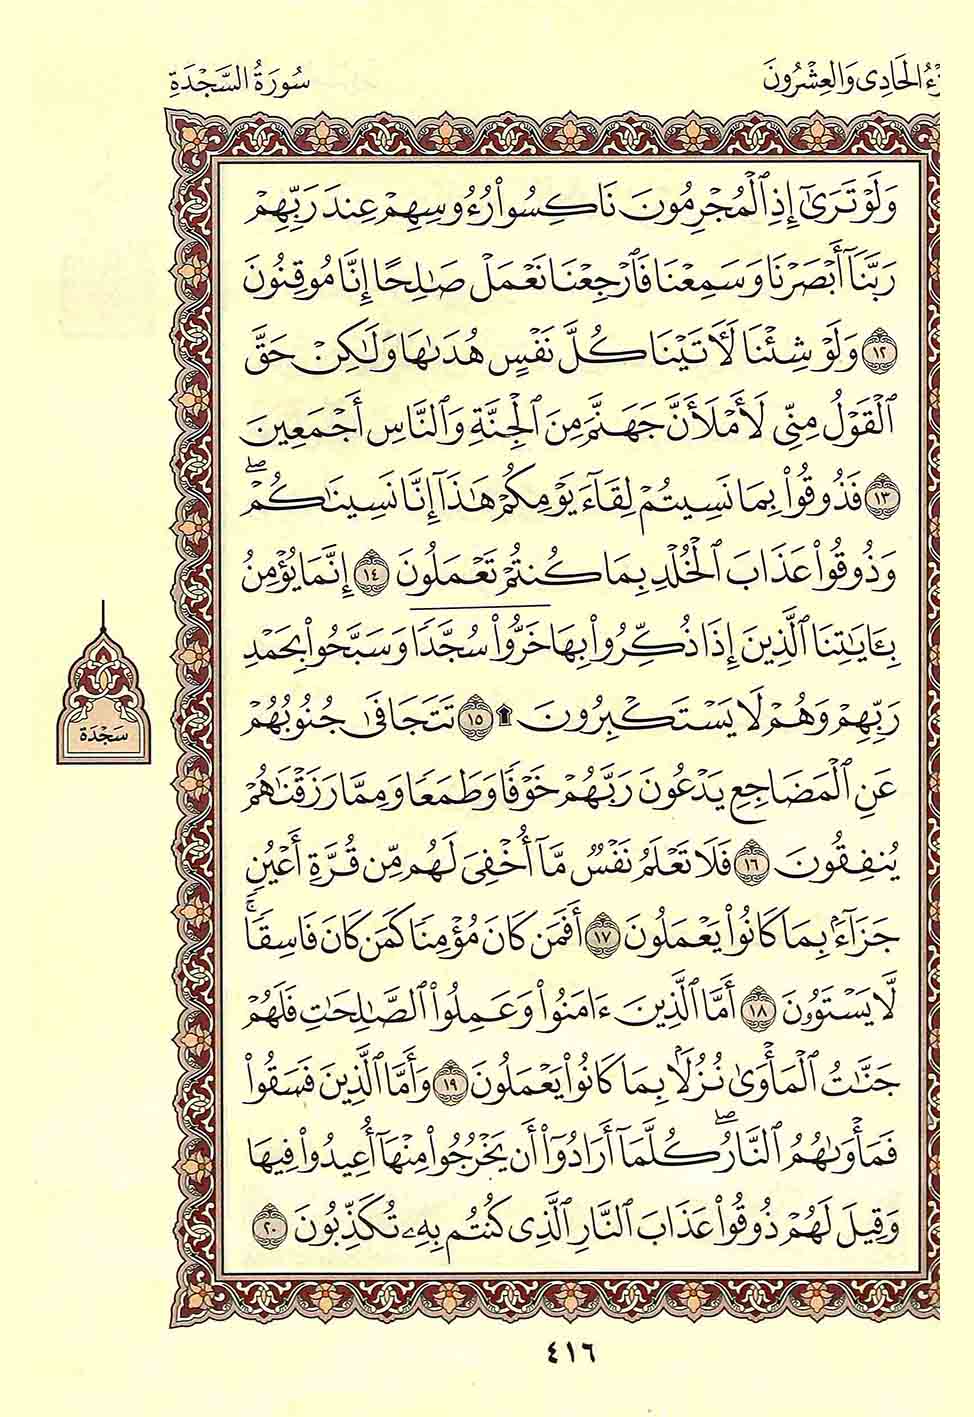 زْءُ الْحَادِي وَالْعِشْرُونَ
سُورَةُ السَّجْدَةِ
وَلَوْ تَرَىٰٓ إِذِ ٱلْمُجْرِمُونَ نَاكِسُوا۟ رُءُوسِهِمْ عِندَ رَبِّهِمْ
رَبَّنَآ أَبْصَرْنَا وَسَمِعْنَا فَٱرْجِعْنَا نَعْمَلْ صَٰلِحًا إِنَّا مُوقِنُونَ
١٢ وَلَوْ شِئْنَا لَءَاتَيْنَا كُلَّ نَفْسٍ هُدَىٰهَا وَلَٰكِنْ حَقَّ
ٱلْقَوْلُ مِنِّى لَأَمْلَأَنَّ جَهَنَّمَ مِنَ ٱلْجِنَّةِ وَٱلنَّاسِ أَجْمَعِينَ
١٣ فَذُوقُوا۟ بِمَا نَسِيتُمْ لِقَآءَ يَوْمِكُمْ هَٰذَآ إِنَّا نَسِينَٰكُمْ ۖ
وَذُوقُوا۟ عَذَابَ ٱلْخُلْدِ بِمَا كُنتُمْ تَعْمَلُونَ ١٤ إِنَّمَا يُؤْمِنُ
بِـَٔايَٰتِنَا ٱلَّذِينَ إِذَا ذُكِّرُوا۟ بِهَا خَرُّوا۟ سُجَّدًا وَسَبَّحُوا۟ بِحَمْدِ
رَبِّهِمْ وَهُمْ لَا يَسْتَكْبِرُونَ ۩ ١٥ تَتَجَافَىٰ جُنُوبُهُمْ
سَجْدَة
عَنِ ٱلْمَضَاجِعِ يَدْعُونَ رَبَّهُمْ خَوْفًا وَطَمَعًا وَمِمَّا رَزَقْنَٰهُمْ
يُنفِقُونَ ١٦ فَلَا تَعْلَمُ نَفْسٌ مَّآ أُخْفِىَ لَهُم مِّن قُرَّةِ أَعْيُنٍ
جَزَآءًۢ بِمَا كَانُوا۟ يَعْمَلُونَ ١٧ أَفَمَن كَانَ مُؤْمِنًا كَمَن كَانَ فَاسِقًا ۚ
لَّا يَسْتَوُۥنَ ١٨ أَمَّا ٱلَّذِينَ ءَامَنُوا۟ وَعَمِلُوا۟ ٱلصَّٰلِحَٰتِ فَلَهُمْ
جَنَّٰتُ ٱلْمَأْوَىٰ نُزُلًۢا بِمَا كَانُوا۟ يَعْمَلُونَ ١٩ وَأَمَّا ٱلَّذِينَ فَسَقُوا۟
فَمَأْوَىٰهُمُ ٱلنَّارُ ۖ كُلَّمَآ أَرَادُوٓا۟ أَن يَخْرُجُوا۟ مِنْهَآ أُعِيدُوا۟ فِيهَا
وَقِيلَ لَهُمْ ذُوقُوا۟ عَذَابَ ٱلنَّارِ ٱلَّذِى كُنتُم بِهِۦ تُكَذِّبُونَ ٢٠
٤١٦